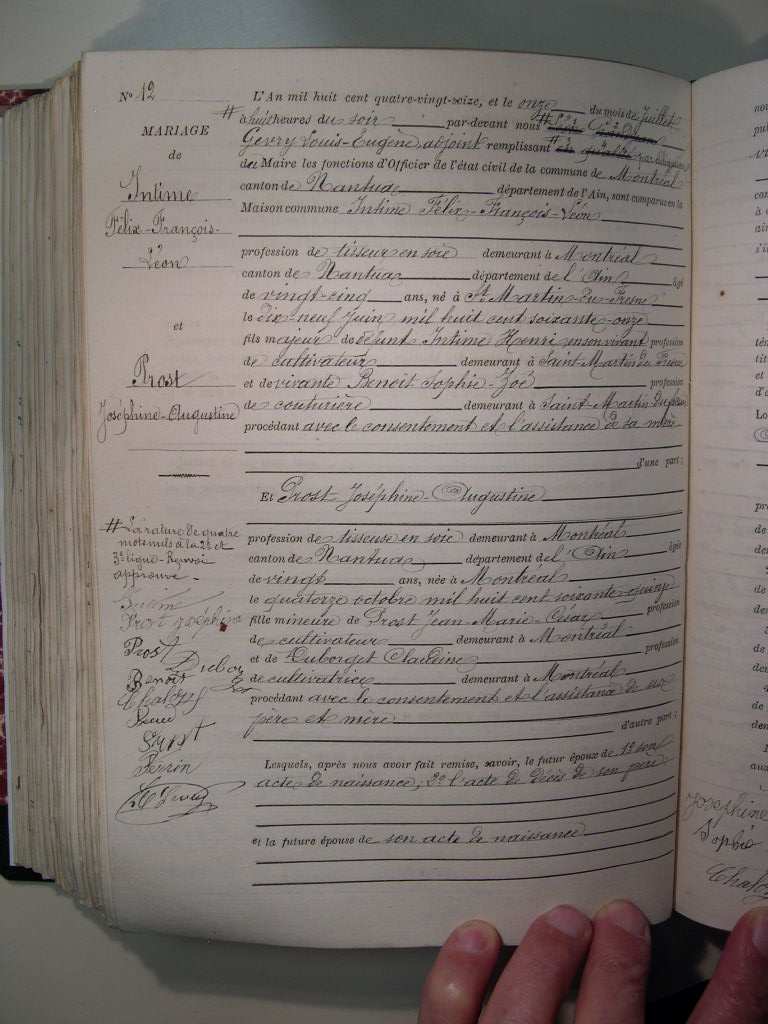 N° 12
MARIAGE
de
Intime
Félix-François-
Léon
et
Prost
Joséphine-Augustine
L'An mil huit cent quatre-vingt-seize, et le onze du mois de Juillet
# à huit heures du soir par-devant nous #
Gevry Louis-Eugène, adjoint remplissant # par délégation
du Maire les fonctions d'Officier de l'état civil de la commune de Montréal
canton de Nantua département de l'Ain, sont comparus en la
Maison commune Intime Félix-François-Léon
profession de tisseur en soie demeurant à Montréal
canton de Nantua département de l'Ain âgé
de vingt-cinq ans, né à St Martin-du-Fresne
le dix neuf Juin mil huit cent soixante-onze
fils majeur de défunt Intime Henri en son vivant profession
de cultivateur demeurant à Saint-Martin du Fresne
et de vivante Benoit Sophie-Zoé profession
de couturière demeurant à Saint-Martin du Fresne
procédant avec le consentement et l'assistance de sa mère
d'une part :
Et Prost Joséphine-Augustine
profession de tisseuse en soie demeurant à Montréal
canton de Nantua département de l'Ain âgée
de vingt ans, née à Montréal
le quatorze octobre mil huit cent soixante quinze
fille mineure de Prost Jean-Marie-César profession
de cultivateur demeurant à Montréal
et de Duborget Claudine profession
de cultivatrice demeurant à Montréal
procédant avec le consentement et l'assistance de ses
père et mère
d'autre part :
Lesquels, après nous avoir fait remise, savoir, le futur époux de 1° son
acte de naissance; 2° l'acte de décès de son père
et la future épouse de son acte de naissance
# La rature de quatre
mots nuls à la 2e et
3e ligne - Renvoi
approuvé -
Intime
Prost Joséphine
Prost
Duborget
Benoit
Chaloy
Prost
Perrin
L. Gevry
Joséphine
Sophie
Chaloy